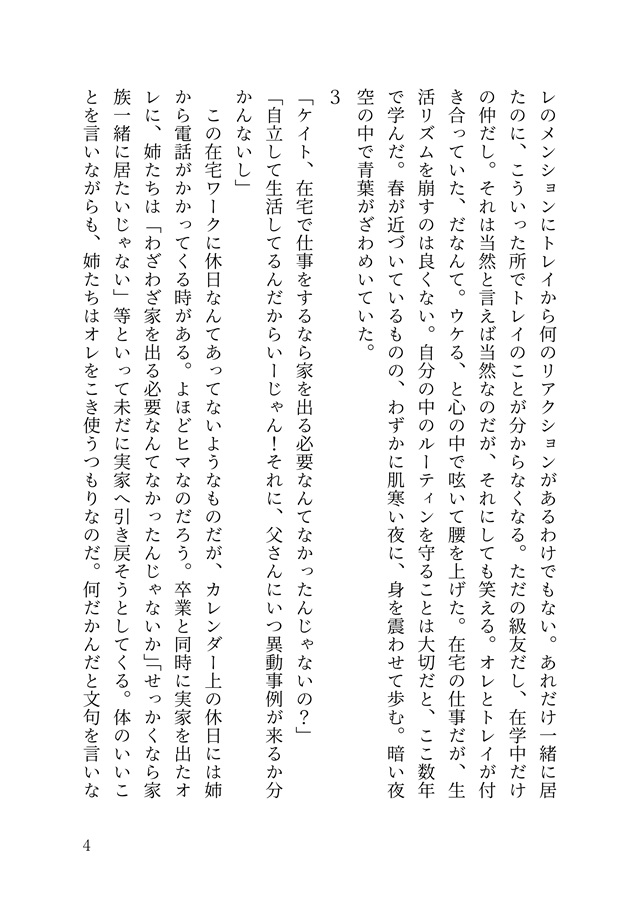 レのメンションにトレイから何のリアクションがあるわけでもない。あれだけ一緒に居
たのに、こういった所でトレイのことが分からなくなる。ただの級友だし、在学中だけ
の仲だし。それは当然と言えば当然なのだが、それにしても笑える。オレとトレイが付
き合っていた、だなんて。ウケる、と心の中で呟いて腰を上げた。在宅の仕事だが、生
活リズムを崩すのは良くない。自分の中のルーティンを守ることは大切だと、ここ数年
で学んだ。春が近づいているものの、わずかに肌寒い夜に、身を震わせて歩む。暗い夜
空の中で青葉がざわめいていた。
3
「ケイト、在宅で仕事をするなら家を出る必要なんてなかったんじゃないの？」
「自立して生活してるんだからいーじゃん！それに、父さんにいつ異動事例が来るか分
かんないし」
　この在宅ワークに休日なんてあってないようなものだが、カレンダー上の休日には姉
から電話がかかってくる時がある。よほどヒマなのだろう。卒業と同時に実家を出たオ
レに、姉たちは「わざわざ家を出る必要なんてなかったんじゃないか」「せっかくなら家
族一緒に居たいじゃない」等といって未だに実家へ引き戻そうとしてくる。体のいいこ
とを言いながらも、姉たちはオレをこき使うつもりなのだ。何だかんだと文句を言いな
4